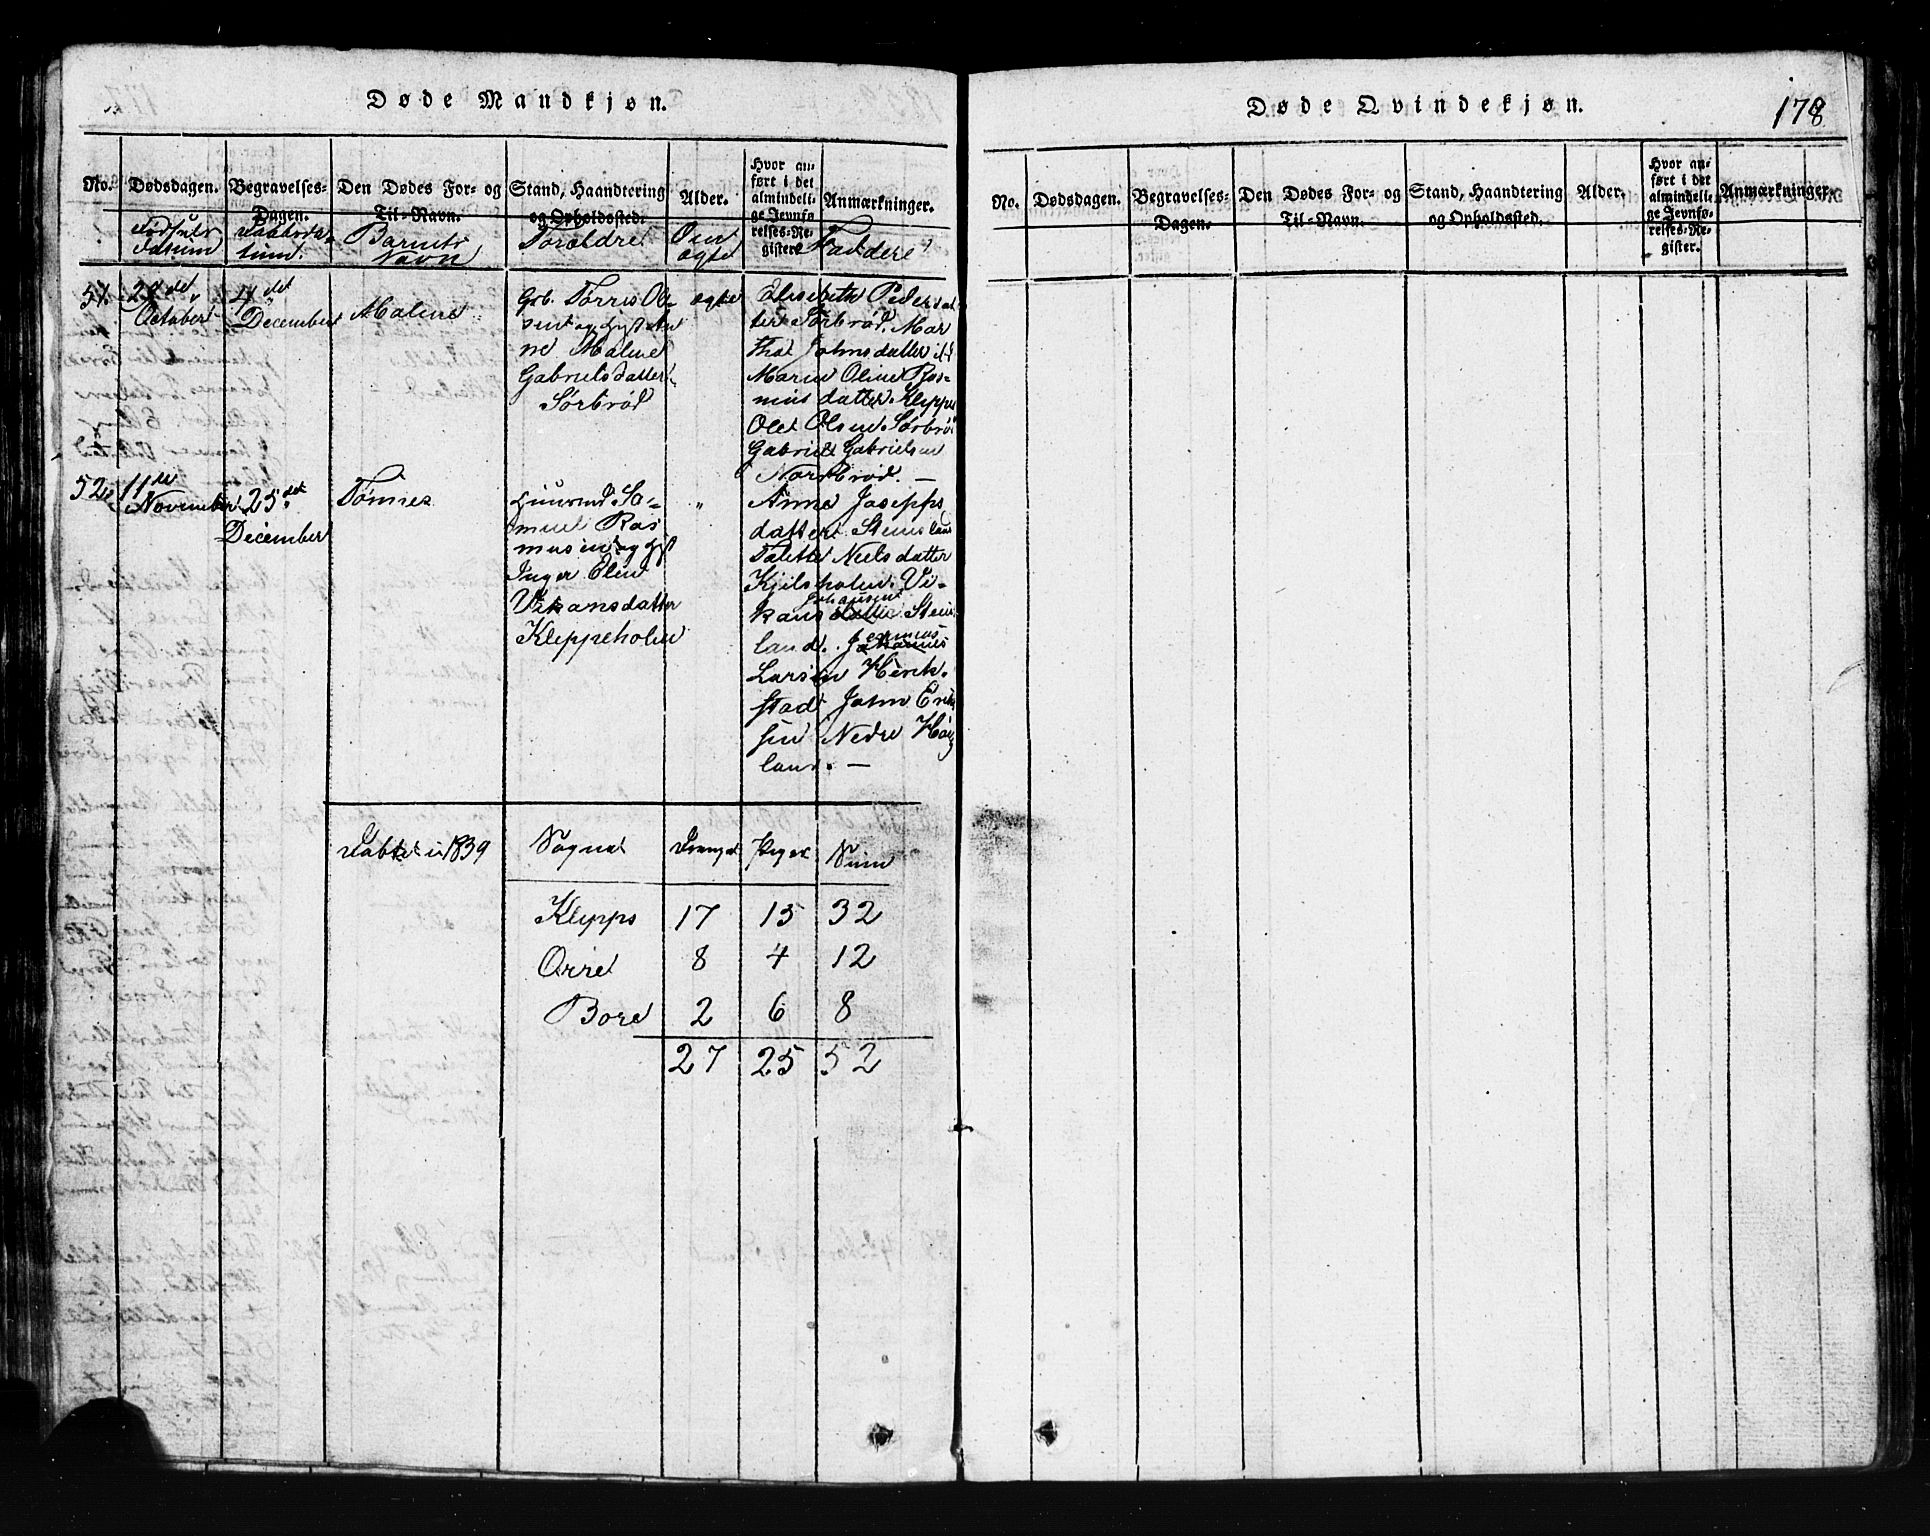 Døde Mandkjøn.
No. Dødsdagen. Begravelses-Dagen. Den Dødes For- og Til-Navn. Stand, Haandtering og Opholdssted. Alder. Hvor anført i det almindelige Jevnførelses-Register. Anmærkninger.
Fødsels Datum
Daabsdatum.
Barnets Navn
Forældre
Om ægte
Faddere
51. 28de October
4det December
Maline
Grb. Tørres Ol-
sen og Hst An
ne Maline
Gabrielsdatter
Sørbrød
ægte
Elisebeth Pedersdat
ter Sørbrød. Mar
tha Johnsdatter
Maren Oline Ras-
mus datter Kleppe
Ole Olsen Sørbrød
Gabriel Gabrielsen
Nordbrød. —
52. 11te November
25det December
Tønnes
Huusmd. Sa-
muel Ras
musen og Hst
Inger Elen
Vikansdatter
Kleppeholen
"
Anne Josepps
datter Steinsland
Talette Nielsdatter
Kjelsholen. Vi-
Johansen
kans datter Stens
land.
Larsen Henk-
stad John Erik
sen Nedre Hau
land. —
Døbte i 1839 Sogne Drenge Piger Sum
Klepps 17 15 32
Orre 8 4 12
Bore 2 6 8
27 25 52
Døde Qvindekjøn.
178
No. Dødsdagen. Begravelses-Dagen. Den Dødes For- og Til-Navn. Stand, Haandtering og Opholdssted. Alder. Hvor anført i det almindelige Jevnførelses-Register. Anmærkninger.